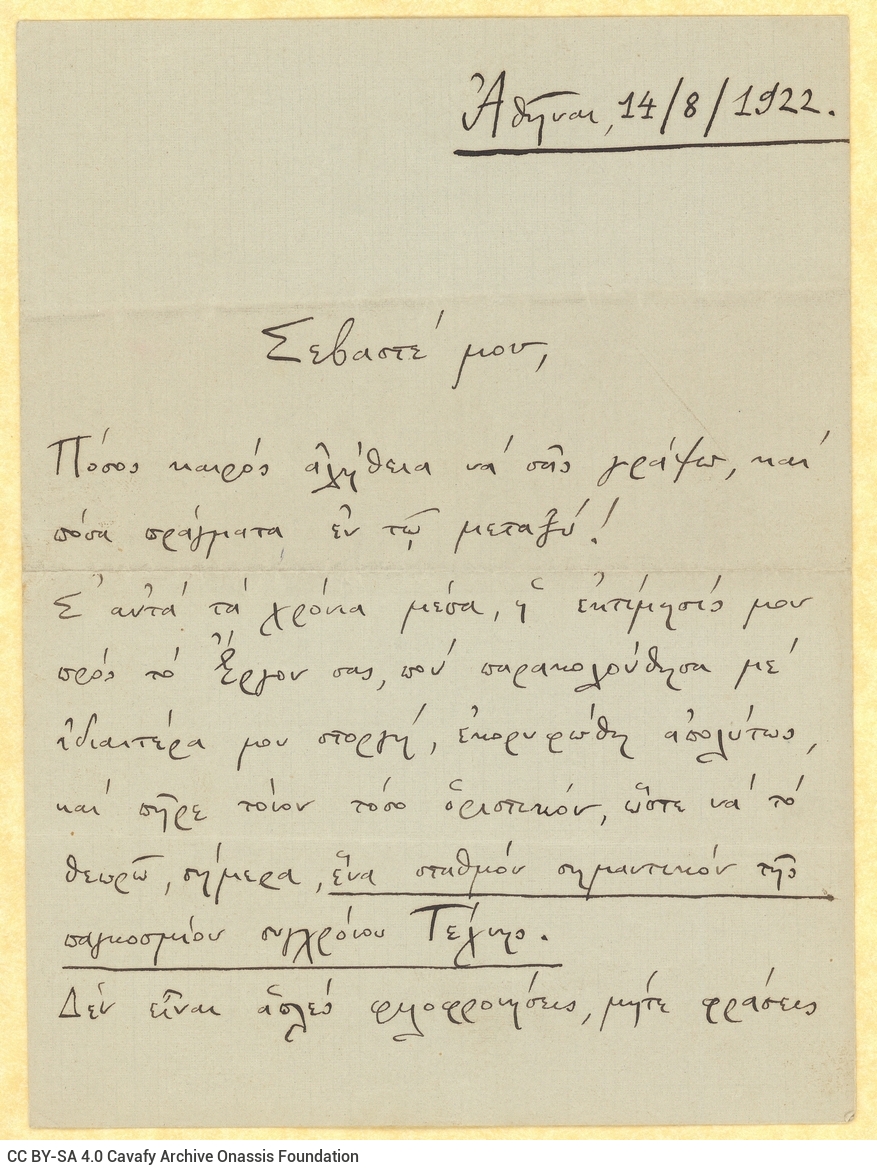 Ἀθῆναι, 14/8/1922.
Σεβαστέ μου,
Πόσος καιρός ἀλήθεια νά σᾶς γράψω, καί
πόσα πράγματα ἐν τῷ μεταξύ!
Σ' αὐτά τά χρόνια μέσα, ἡ ἐκτίμησίς μου
πρός τό Ἔργον σας, πού παρακολούθησα μέ
ἰδιαιτέρα μου στοργή, ἐκορυφώθη ἀπολύτως,
καί πῆρε τόνον τόσο ὁριστικόν, ὥστε νά τό
θεωρῶ, σήμερα, ἕνα σταθμόν σημαντικόν τῆς
παγκοσμίου συγχρόνου Τέχνης.
Δέν εἶναι ἁπλές φιλοφρονήσεις, μήτε φράσεις
CC BY-SA 4.0 Cavafy Archive Onassis Foundation